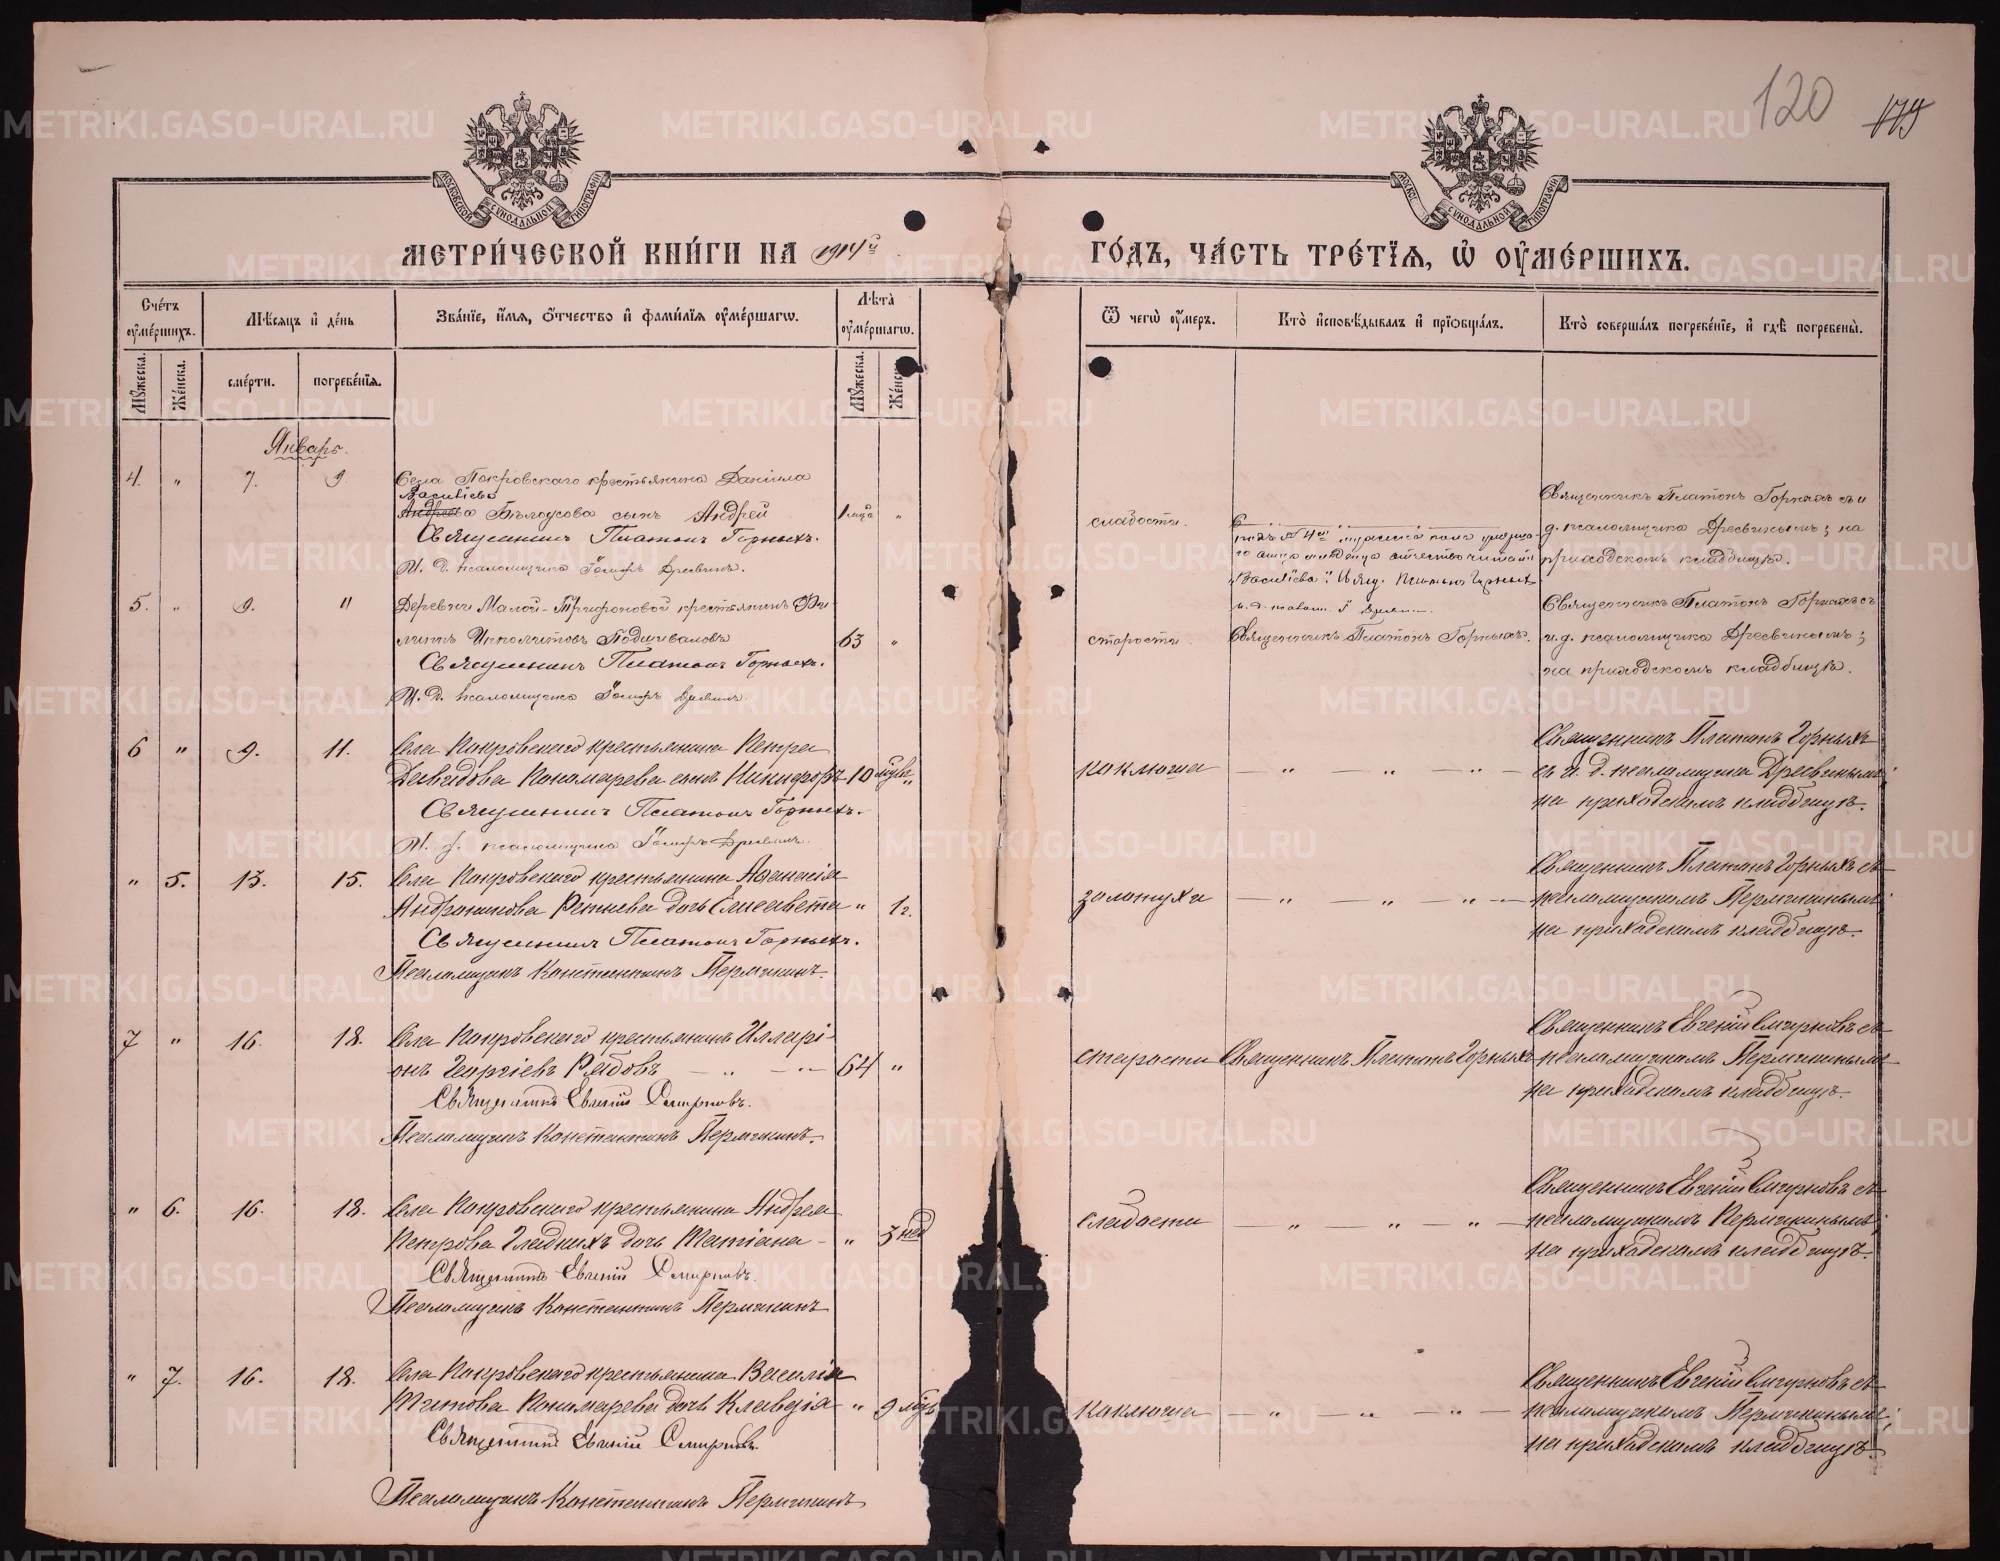 120 179
МОСКОВСКОЙ СѴНОДАЛЬНОЙ ТИПОГРАФІИ
МЕТРИ́ЧЕСКОЙ КНИ́ГИ НА 1914й ГО́ДЪ, ЧА́СТЬ ТРЕ́ТІѦ, Ѡ҆ ОУ҆МЕ́РШИХЪ.
Сче́тъ оу҆ме́ршихъ.
Мꙋ́жеска.
Же́нска.
Мѣ́сѧцъ и҆ де́нь
сме́рти.
погребе́нїѧ.
Зва́нїе, и҆́мѧ, ѻ҆́тчество и҆ фами́лїѧ оу҆ме́ршагѡ.
Лѣ́та оу҆ме́ршагѡ.
Мꙋ́жеска.
Же́нска.
Ѿ чегѡ̀ оу҆́меръ.
Кто̀ и҆сповѣ́дывалъ и҆ прїѡбща́лъ.
Кто̀ соверша́лъ погребе́нїе, и҆ гдѣ̀ погребены̀.
Январь.
4. " 7. 9. Села Покровскаго крестьянина Даніила
Васильева
Андреева Бѣлоусова сынъ Андрей 1 мцъ "
Священникъ Платонъ Горныхъ.
И. д. псаломщика Іосифъ Дресвинъ.
слабости.
"Васильева". Свящ. Платонъ Горныхъ
Священникъ Платонъ Горныхъ съ и
д. псаломщика Дресвинымъ; на
приходскомъ кладбищѣ.
5. " 9. 11 Деревни Малой-Трифоновой крестьянинъ Фи-
липпъ Ипполитовъ Подшиваловъ 63 "
Священникъ Платонъ Горныхъ.
И. д. псаломщика Іосифъ Дресвинъ.
старости. Священникъ Платонъ Горныхъ.
Священникъ Платонъ Горныхъ съ
и.д. псаломщика Дресвинымъ;
на приходскомъ кладбищѣ.
6 " 9. 11. Села Покровскаго крестьянина Петра
Давидова Пономарева сынъ Никифоръ 10 "
Священникъ Платонъ Горныхъ.
И. д. псаломщика Іосифъ Дресвинъ.
коклюша — " — " — " —
Священникъ Платонъ Горныхъ
съ и. д. псаломщика Дресвинымъ;
на приходскомъ кладбищѣ.
" 5. 13. 15. Села Покровскаго крестьянина Аѳанасія
Андроникова Ретнева дочь Елисавета " 1 г.
Священникъ Платонъ Горныхъ.
Псаломщикъ Константинъ Пермикинъ.
золотухи — " — " —
Священникъ Платонъ Горныхъ съ
псаломщикомъ Пермикинымъ;
на приходскомъ кладбищѣ.
7 " 16. 18. Села Покровскаго крестьянинъ Илларі-
онъ Георгіевъ Рябовъ — " — " — 64 "
Священникъ Евгеній Смирновъ.
Псаломщикъ Константинъ Пермикинъ.
старости Священникъ Платонъ Горныхъ
Священникъ Евгеній Смирновъ съ
псаломщикомъ Пермикинымъ
на приходскомъ кладбищѣ.
" 6. 16. 18. Села Покровскаго крестьянина Андрея
Петрова Гладкихъ дочь Татіана — " 3 нед
Священникъ Евгеній Смирновъ.
Псаломщикъ Константинъ Пермикинъ
слабости — " — " — " —
Священникъ Евгеній Смирновъ съ
псаломщикомъ Пермикинымъ;
на приходскомъ кладбищѣ.
" 7. 16. 18. Села Покровскаго крестьянина Василія
Титова Пономарева дочь Клавдія — " 9 мцъ
Священникъ Евгеній Смирновъ.
Псаломщикъ Константинъ Пермикинъ
коклюша — " — " — " —
Священникъ Евгеній Смирновъ съ
псаломщикомъ Пермикинымъ;
на приходскомъ кладбищѣ.
METRIKI.GASO-URAL.RU